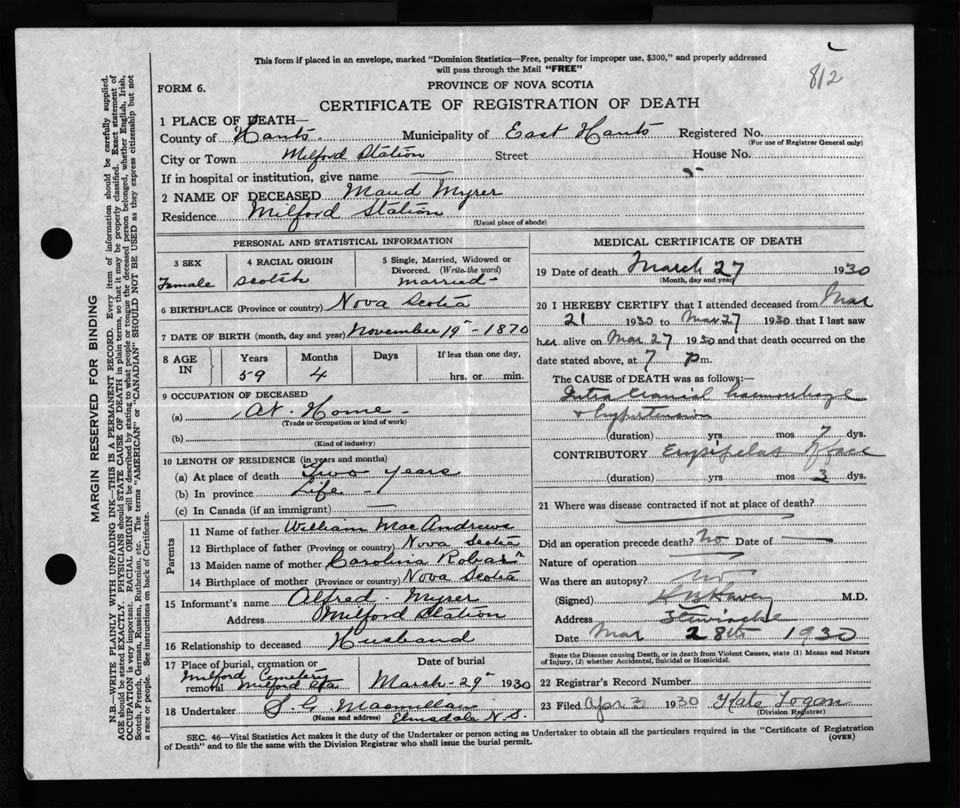 812
This form if placed in an envelope, marked "Dominion Statistics—Free, penalty for improper use, $300," and properly addressed
will pass through the Mail "FREE"
FORM 6.
PROVINCE OF NOVA SCOTIA
CERTIFICATE OF REGISTRATION OF DEATH
1 PLACE OF DEATH—
County of Hants Municipality of East Hants Registered No.
(For use of Registrar General only)
City or Town Milford Station Street House No.
If in hospital or institution, give name —
2 NAME OF DECEASED Maud Myrer
Residence Milford Station
(Usual place of abode)
PERSONAL AND STATISTICAL INFORMATION
3 SEX 4 RACIAL ORIGIN 5 Single, Married, Widowed or
Divorced. (Write the word)
Female Scotch married
6 BIRTHPLACE (Province or country) Nova Scotia
7 DATE OF BIRTH (month, day and year) November 19" - 1870
8 AGE IN Years Months Days If less than one day,
59 4 hrs. or min.
9 OCCUPATION OF DECEASED
(a) At Home -
(Trade or occupation or kind of work)
(b)
(Kind of industry)
10 LENGTH OF RESIDENCE (in years and months)
(a) At place of death Two years
(b) In province Life -
(c) In Canada (if an immigrant) —
Parents
11 Name of father William MacAndrews
12 Birthplace of father (Province or country) Nova Scotia
13 Maiden name of mother Carolina
14 Birthplace of mother (Province or country) Nova Scotia
15 Informant's name Alfred Myrer
Address Milford Station
16 Relationship to deceased Husband
17 Place of burial, cremation or removal Date of burial
Milford Cemetery
Milford Sta. March - 29" 1930
18 Undertaker S G Macmillan
(Name and address) Elmsdale N.S.
MEDICAL CERTIFICATE OF DEATH
19 Date of death March 27 1930
(Month, day and year)
20 I HEREBY CERTIFY that I attended deceased from Mar
21 1930 to Mar 27 1930 that I last saw
her alive on Mar 27 1930 and that death occurred on the
date stated above, at 7 p m.
The CAUSE OF DEATH was as follows:—
Intra Cranial haemorrhage
& hypertension
(duration) yrs mos 7 dys.
CONTRIBUTORY Erysipelas of face
(duration) yrs mos 3 dys.
21 Where was disease contracted if not at place of death?
Did an operation precede death? No Date of —
Nature of operation
Was there an autopsy? no
(Signed) M.D.
Address Stewiacke
Date Mar 28th 1930
State the Disease causing Death, or in death from Violent Causes, state (1) Means and Nature
of Injury, (2) whether Accidental, Suicidal or Homicidal.
22 Registrar's Record Number
23 Filed Apr 3 1930 Kate Logan
(Division Registrar)
SEC. 46—Vital Statistics Act makes it the duty of the Undertaker or person acting as Undertaker to obtain all the particulars required in the "Certificate of Registration
of Death" and to file the same with the Division Registrar who shall issue the burial permit.
(OVER)
MARGIN RESERVED FOR BINDING
N.B.—WRITE PLAINLY WITH UNFADING INK—THIS IS A PERMANENT RECORD. Every item of information should be carefully supplied.
AGE should be stated EXACTLY. PHYSICIANS should STATE CAUSE OF DEATH in plain terms, so that it may be properly classified. Exact statement of
OCCUPATION is very important. RACIAL ORIGIN will be described by stating to what people or tongue the deceased person belonged, whether English, Irish,
Scotch, French, German, Russian, Ruthenian, etc. The terms "AMERICAN" or "CANADIAN" SHOULD NOT BE USED as they express citizenship but not
a race or people. See instructions on back of Certificate.